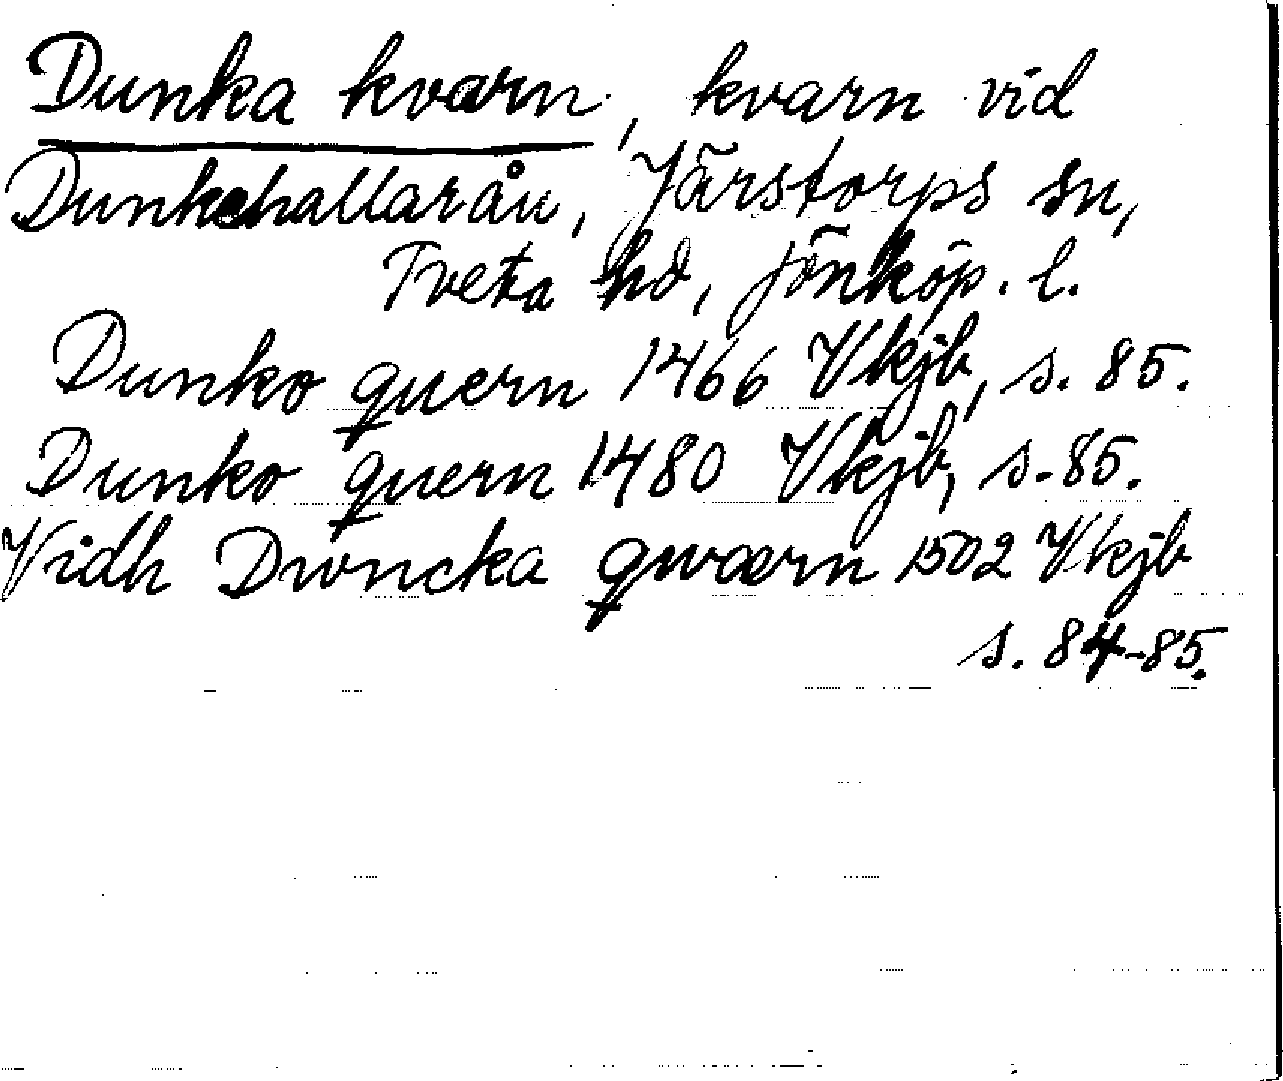 Dunka kvarn, kvarn vid
Dunkehallaråu, Järstorps sn,
Tveta hd, Jönköp. l.
Dunko quern 1466 Vkjb, s. 85.
Dunko quern 1480 Vkjb, s. 85.
Vidh Dwncka qwærn 1502 Vkjb
s. 84-85.